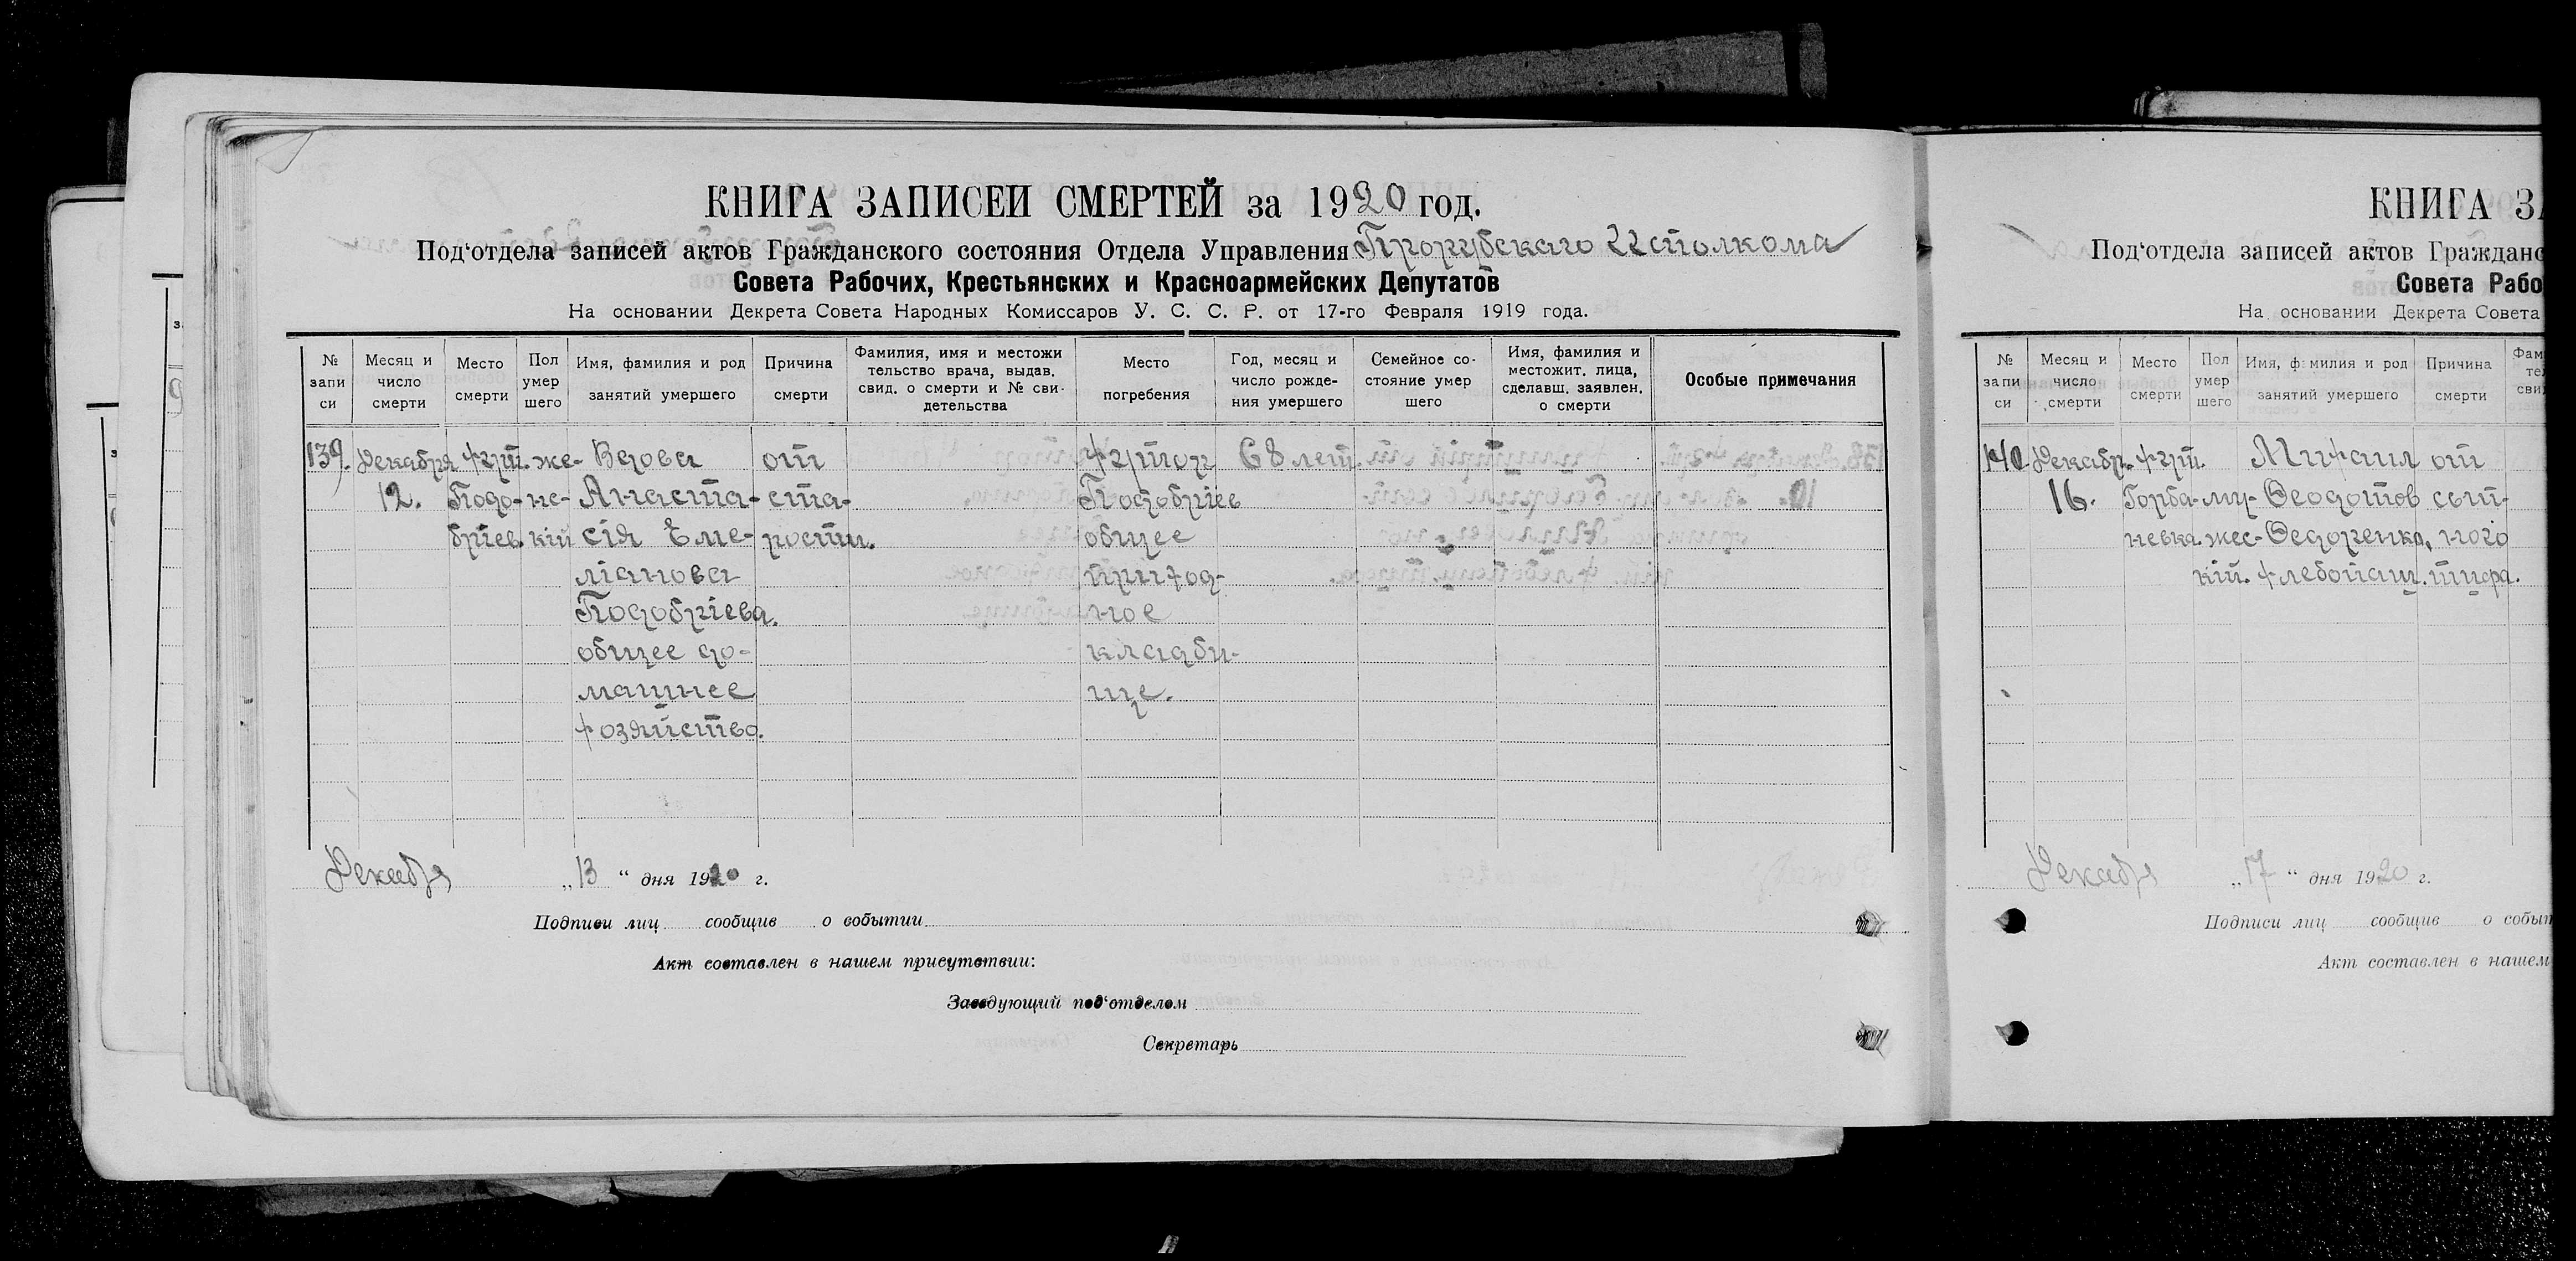 КНИГА ЗАПИСЕЙ СМЕРТЕЙ за 1920 год.
Под‘отдела записей актов Гражданского состояния Отдела Управления Прорубскаго Исполкома
Совета Рабочих, Крестьянских и Красноармейских Депутатов
На основании Декрета Совета Народных Комиссаров У. С. С. Р. от 17-го Февраля 1919 года.
№ запи си
Месяц и число смерти
Место смерти
Пол умер шего
Имя, фамилия и род занятий умершего
Причина смерти
Фамилия, имя и местожи тельство врача, выдав. свид. о смерти и № сви- детельства
Место погребения
Год, месяц и число рожде- ния умершего
Семейное со- стояние умер шего
Имя, фамилия и местожит. лица, сделавш. заявлен. о смерти
Особые примечания
139.
Декабря
12.
хут.
Подо-
бріев.
же-
нс-
кій
Вдова
Анаста-
сія Еме-
ліанова
Подобріева.
общее до-
машнее
хозяйство.
от
ста-
рости.
хутор
Подобріев
общее
приход-
ное
кладби-
ще.
68 лет.
Декабря „13“ дня 1920 г.
Подписи лиц сообщив о событии
Акт составлен в нашем присутствии:
Заведующий под‘отделом
Секретарь
КНИГА ЗА
Под‘отдела записей актов Гражданс
Совета Рабо
На основании Декрета Совета
№ запи си
Месяц и число смерти
Место смерти
Пол умер шего
Имя, фамилия и род занятий умершего
Причина смерти
Фам те свид
140
Декабр.
16.
хут.
Горба-
невка.
му-
жес-
кій.
Михаил
Ѳеодотов
Ѳедоренко,
хлебопаш.
от
сып-
ного
тифа.
Декабря „17“ дня 1920 г.
Подписи лиц сообщив о событ
Акт составлен в нашем